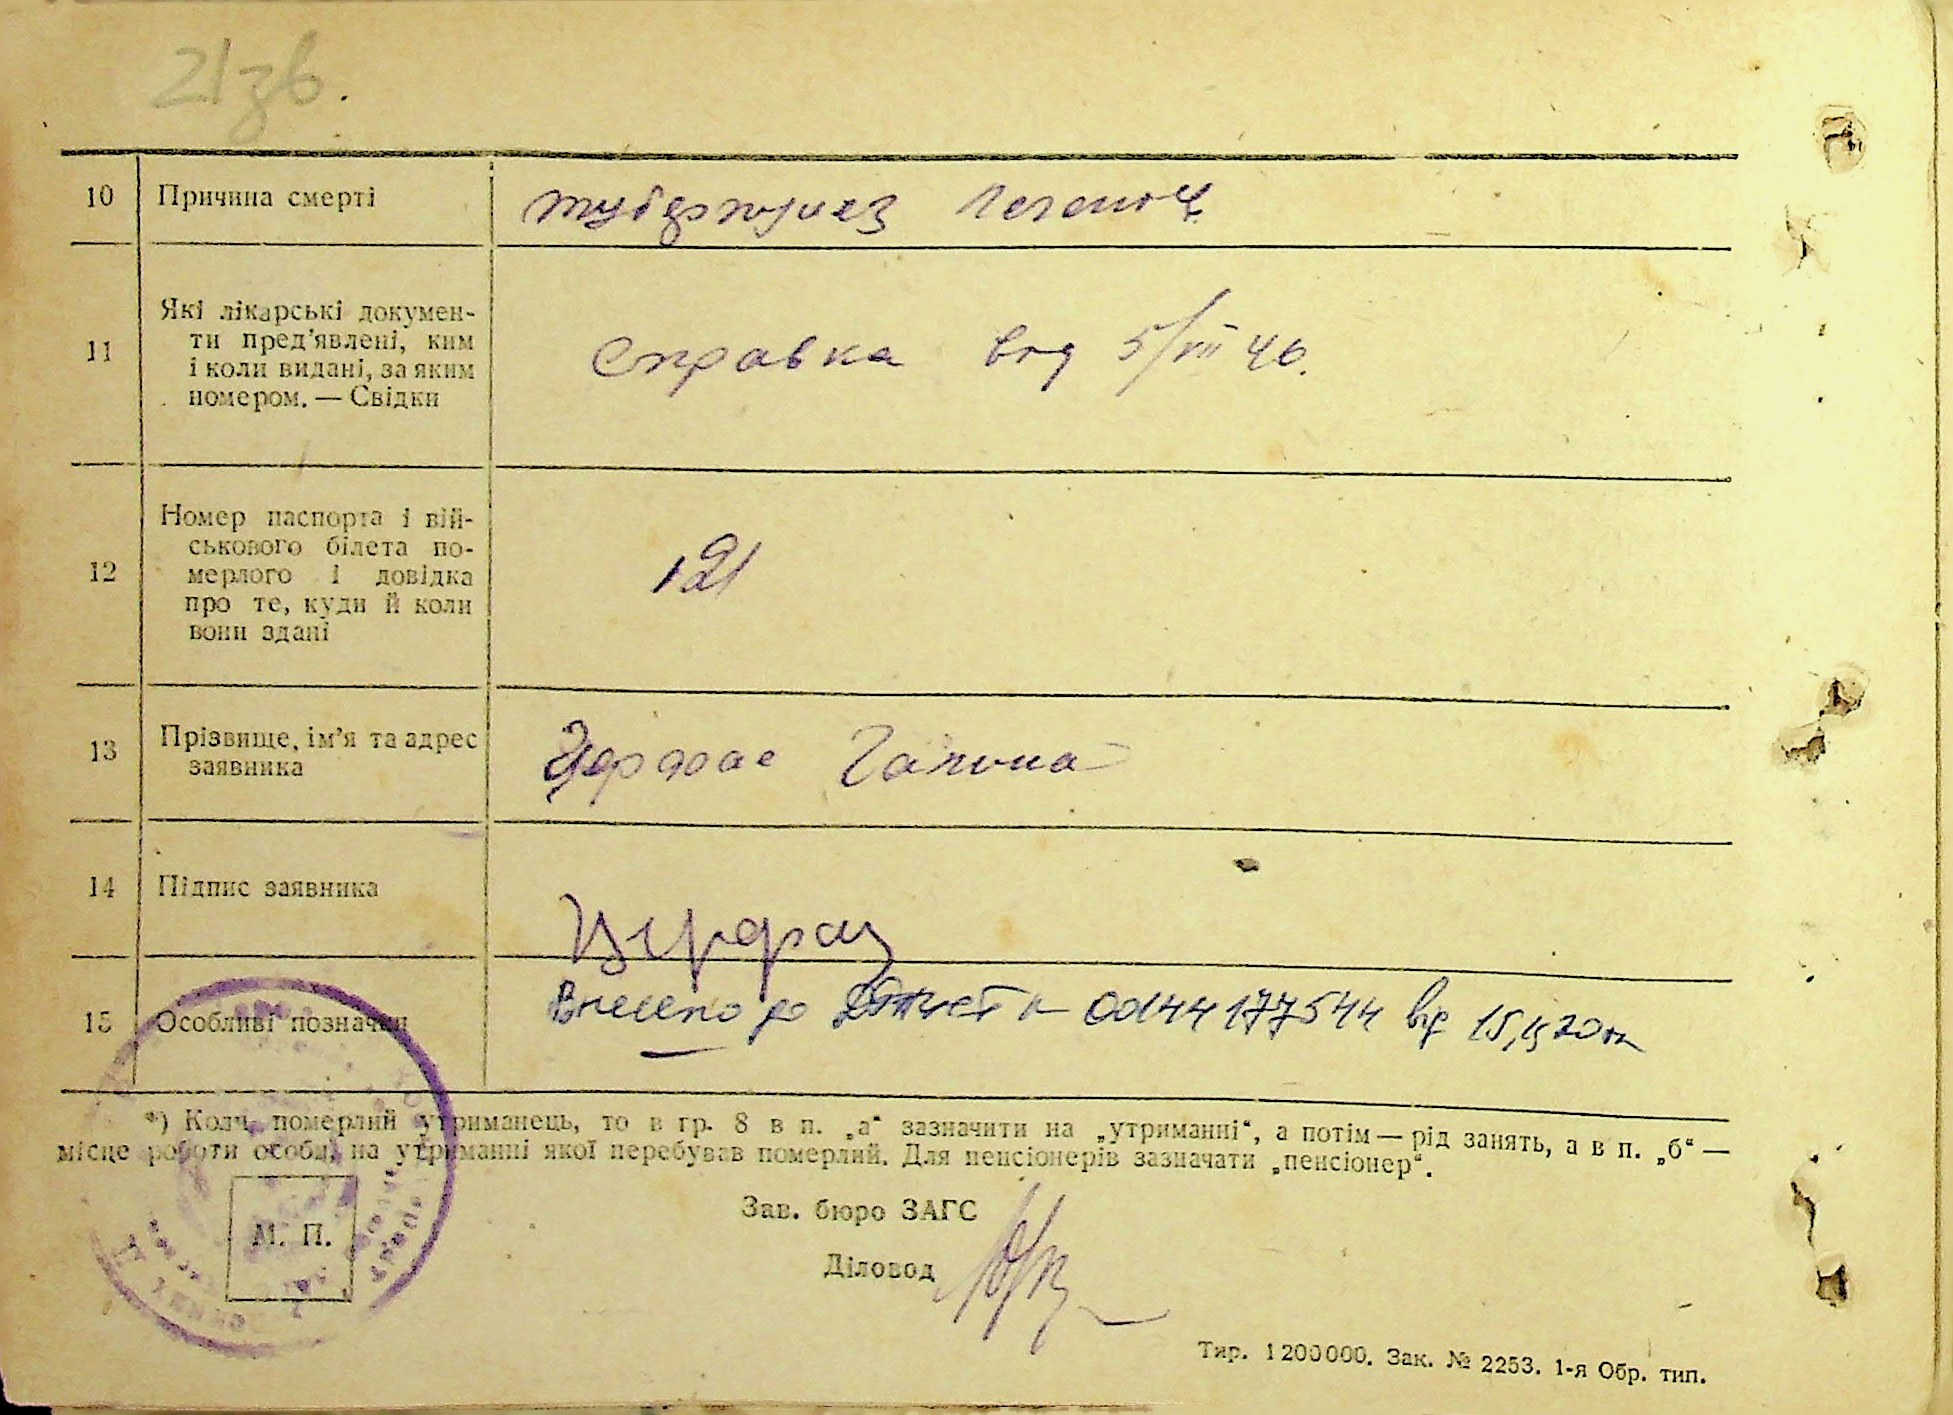 21зв.
10 Причина смерті туберкульез легених
11 Які лікарські докумен-
ти пред'явлені, ким
і коли видані, за яким
номером. — Свідки
Справка від 5/VIII 46.
12 Номер паспорта і вій-
ськового білета по-
мерлого і довідка
про те, куди й коли
вони здані
121
13 Прізвище, ім'я та адрес
заявника
Галина
14 Підпис заявника
15 Особливі позначки
Внесено до 00144177544 від
*) Коли померлий утриманець, то в гр. 8 в п. „а“ зазначити на „утриманні“, а потім — рід занять, а в п. „б“ —
місце роботи особи, на утриманні якої перебував померлий. Для пенсіонерів зазначати „пенсіонер“.
Зав. бюро ЗАГС
Діловод
М. П.
Тир. 1200000. Зак. № 2253. 1-я Обр. тип.